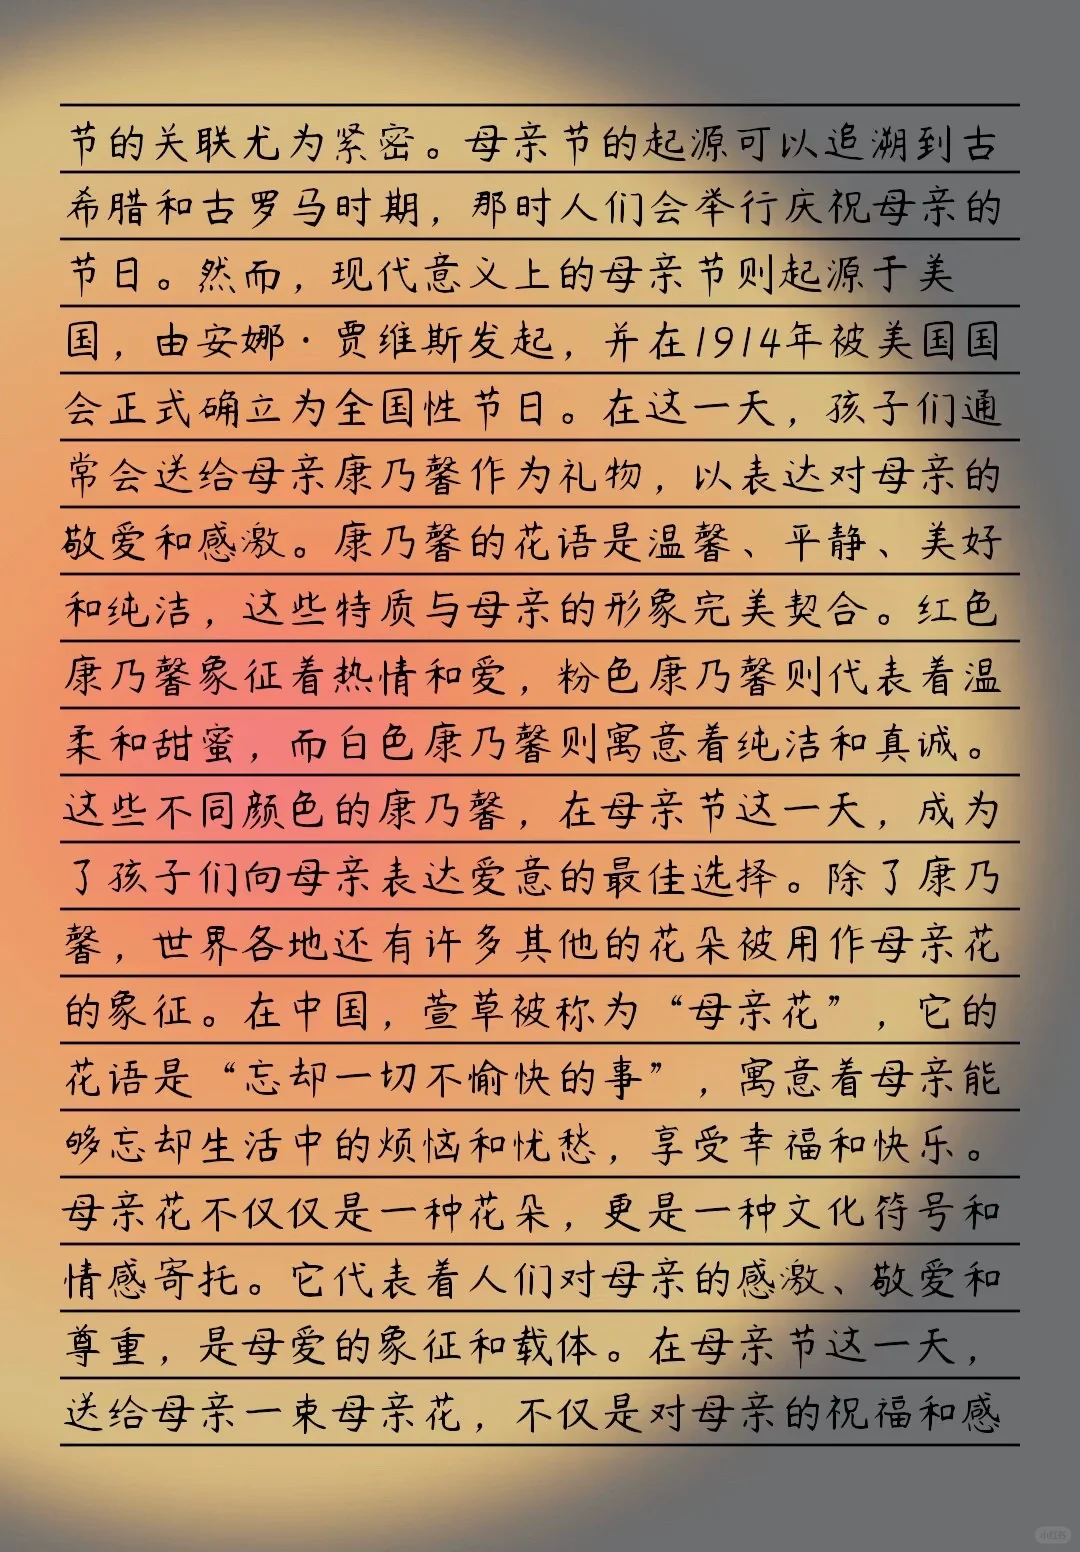 节的关联尤为紧密。母亲节的起源可以追溯到古
希腊和古罗马时期，那时人们会举行庆祝母亲的
节日。然而，现代意义上的母亲节则起源于美
国，由安娜·贾维斯发起，并在1914年被美国国
会正式确立为全国性节日。在这一天，孩子们通
常会送给母亲康乃馨作为礼物，以表达对母亲的
敬爱和感激。康乃馨的花语是温馨、平静、美好
和纯洁，这些特质与母亲的形象完美契合。红色
康乃馨象征着热情和爱，粉色康乃馨则代表着温
柔和甜蜜，而白色康乃馨则寓意着纯洁和真诚。
这些不同颜色的康乃馨，在母亲节这一天，成为
了孩子们向母亲表达爱意的最佳选择。除了康乃
馨，世界各地还有许多其他的花朵被用作母亲花
的象征。在中国，萱草被称为“母亲花”，它的
花语是“忘却一切不愉快的事”，寓意着母亲能
够忘却生活中的烦恼和忧愁，享受幸福和快乐。
母亲花不仅仅是一种花朵，更是一种文化符号和
情感寄托。它代表着人们对母亲的感激、敬爱和
尊重，是母爱的象征和载体。在母亲节这一天，
送给母亲一束母亲花，不仅是对母亲的祝福和感
小红书